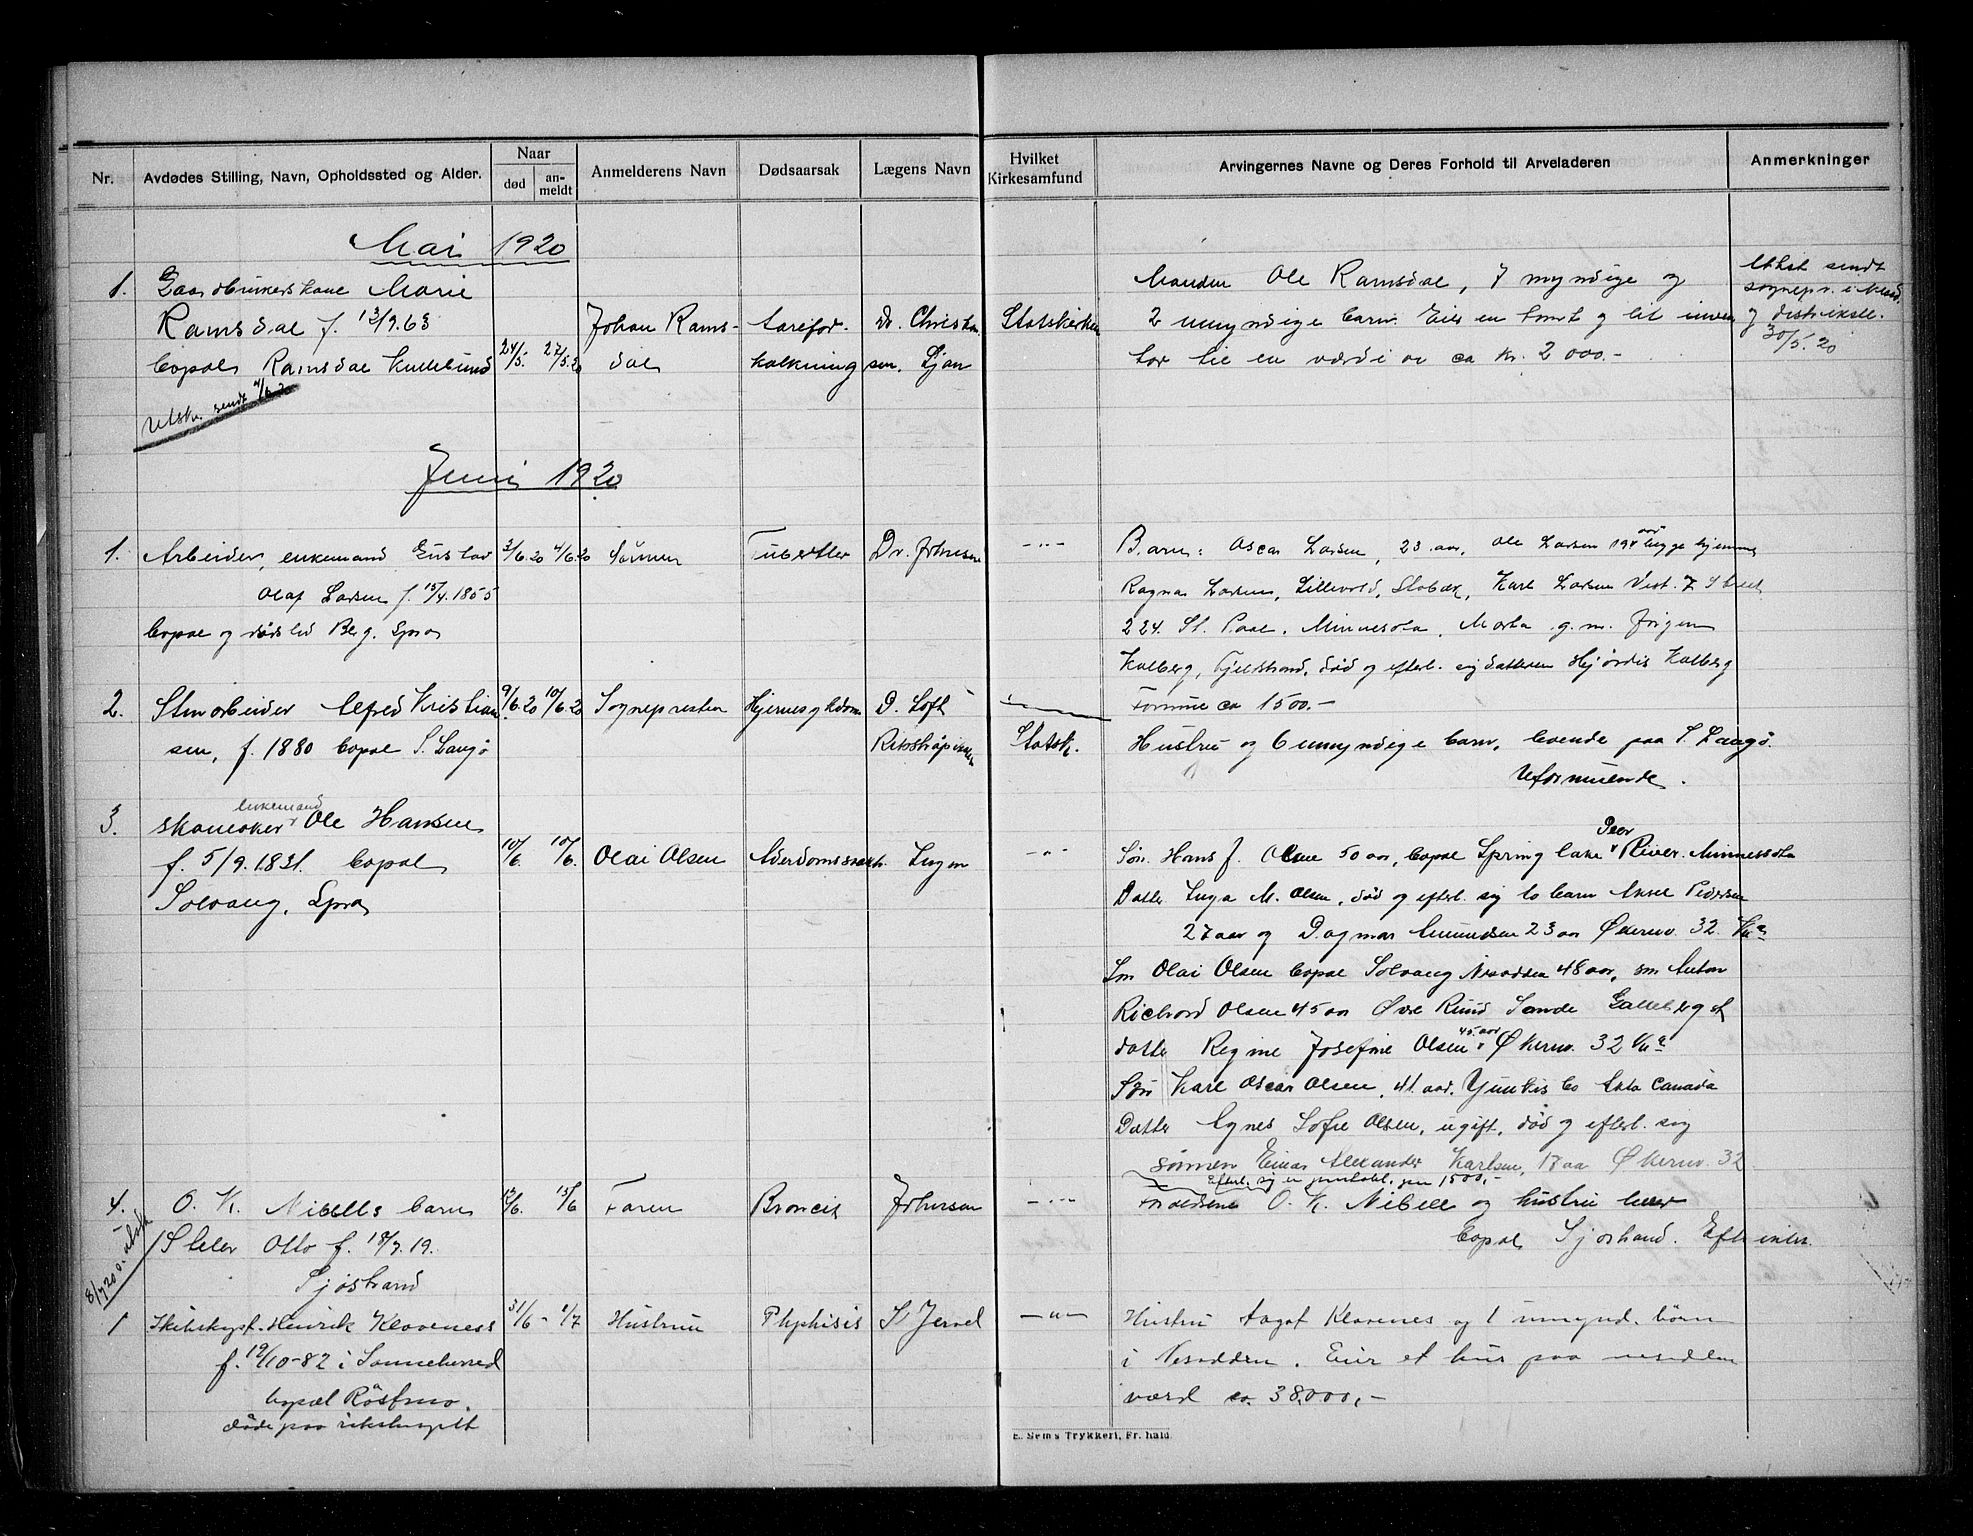 Nr. Avdødes Stilling, Navn, Opholdssted og Alder. Naar død anmeldt Anmelderens Navn Dødsaarsak Lægens Navn Hvilket Kirkesamfund Arvingernes Navne og Deres Forhold til Arveladeren Anmerkninger
Mai 1920
1. Gaardbrukerskone Marie
Ramsdal f. 13/9.63
bopæl Ramsdal
24/5. 27/5.20
Johan Rams-
dal
aarefor-
kalkning
Dr. Christen
sen, Ljan
Statskirken
Manden Ole Ramsdal, 7 myndige og
2 umyndige barn. Eier en tomt og lit inven
tar til en værdi av ca kr. 2000.-
Utskr. sendt
sognepr. i
og distriksl.
30/5.20
Utskr. sendt 4/6.20
Juni 1920
1. Arbeider, enkemand Gustav
Olaf Larsen f. 15/4.1855
bopæl og dødssted Berg, Spro
3/6.20 4/6.20
Sønnen
Dr. Johnsen
-"-
Barn: Oscar Larsen, 23 aar, Ole Larsen 19 aar begge hjemme
Ragna Larsen, Lillevold, Stabæk, Karl Larsen Vest. 7 Street
224. St. Paal, Minnesota, Marta g.m. Jørgen
Kalberg, Fjellstrand, død og efterl. sig datteren Hjørdis Kalberg
Formue ca 1500.-
2. Stenarbeider Alfred Kristian
sen, f. 1880 bopæl S. Langø
9/6.20 10/6.20
Sognepresten
Hjernesykdom
D. Loft
Rikshospitalet
Statsk.
Hustru og 6 umyndige barn, boende paa S. Langø.
Uformuende.
3. skomaker enkemand Ole Hansen
f. 5/9.1831. bopæl
Solvang, Spro
10/6 10/6.
Olai Olsen
Alderdomssvakh.
Ingen
-"-
Søn Hans J. Olsen 50 aar, bopæl Spring lake Deer River. Minnessota
Datter Inga M. Olsen, død og efterl. sig to barn Aksel Pedersen
27 aar og Dagmar Amundsen 23 aar Økernv. 32 Kra
Søn Olai Olsen bopæl Solvang Nesodden 48 aar, søn Anton
Richard Olsen 45 aar Øvre Rund Sande Galleberg st
datter Regine Josefine Olsen 45 aar Økernv. 32 Kra
Søn Karl Oscar Olsen, 41 aar. Alta Canada
Datter Agnes Sofie Olsen, ugift, død og efterl. sig
sønnen Einar Alexander Karlsen, 17 aar Økernv. 32
Efterl. sig
1500,-
4. O. K. Nibells barn
Otto f. 18/7.19.
Sjøstrand
13/6. 15/6
Faren
Broncit
Johnsen
-"-
Forældrene O. K. Nibell og hustru
bopæl Sjøstrand. Eft intet.
8/7 20 utskr.
1 Skibskapt. Henrik Klaveness
f. 12/10-82 i Sandeherred
bopæl Røstmo.
døde paa rikshospitl
31/6 - 1/7
Hustruen
Phthisis
Jervel
-"-
Hustru Aagot Klavenes og 1 umynd. børn
i Nesodden. Eier et hus paa nesodden
værd ca. 38,000,-
E. Sem's Trykkeri, Fr.hald.